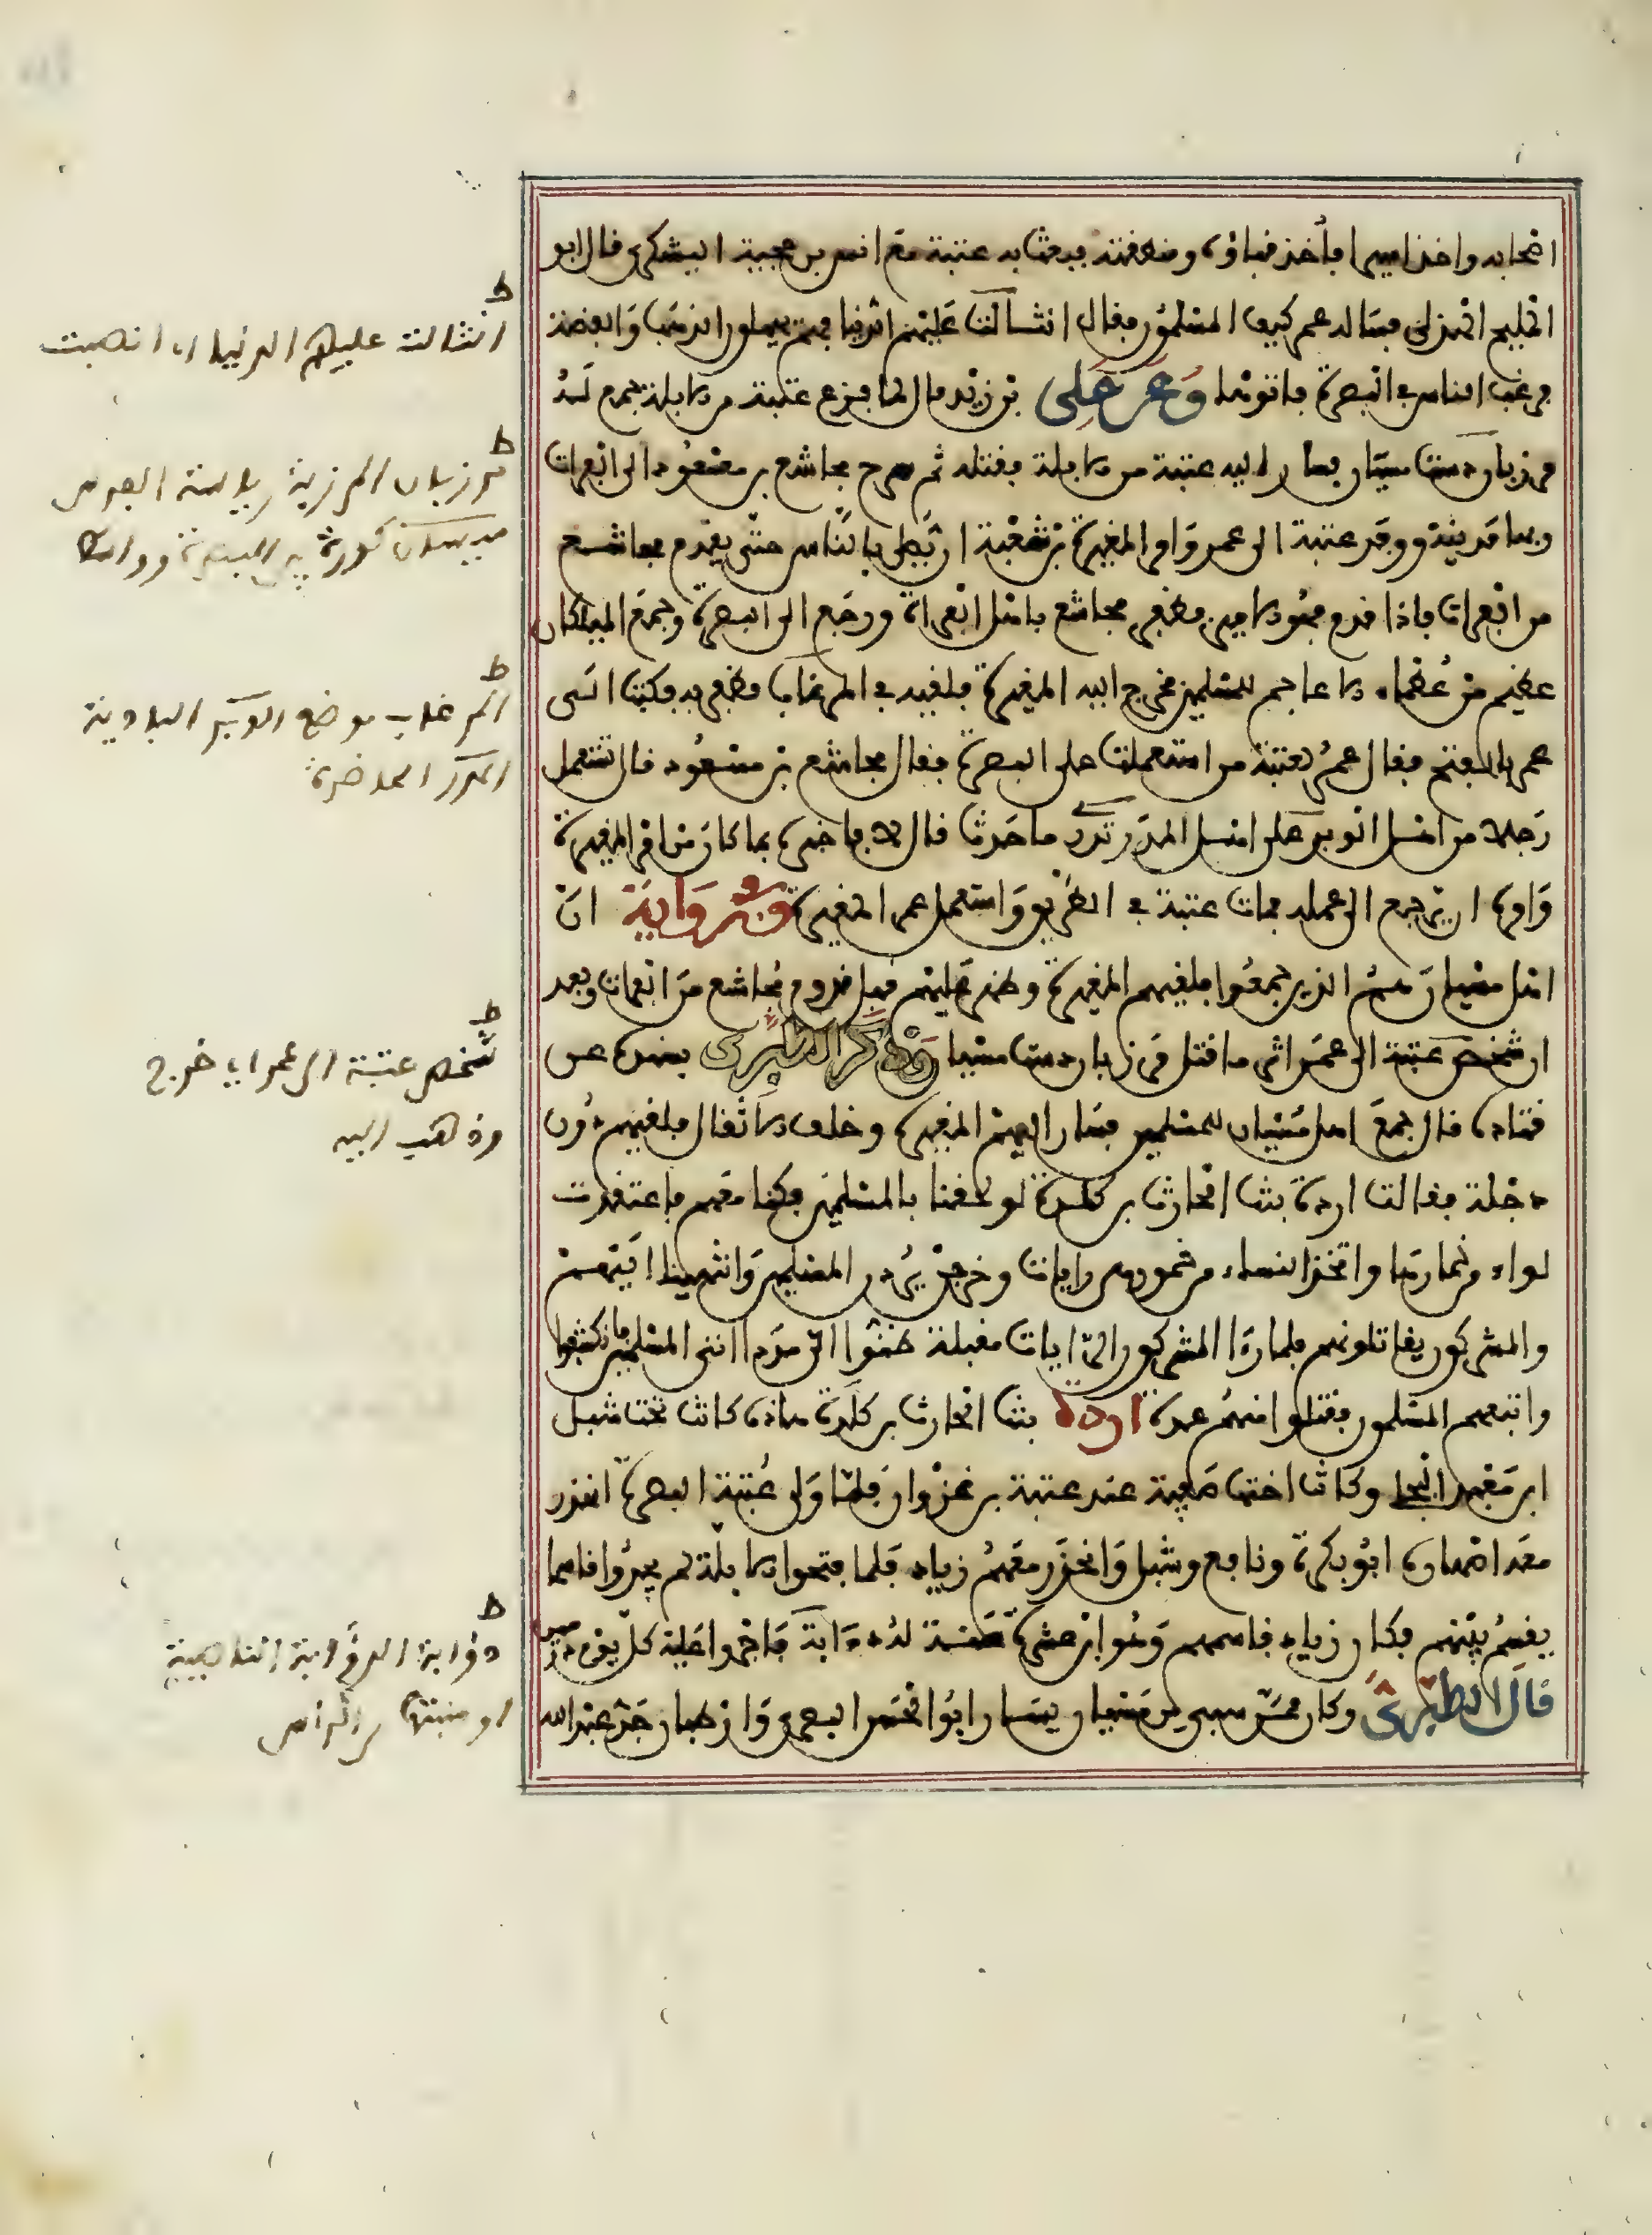 اصحابه واخذ اسيرا فأخذ قباؤه ومنطقته فبعث به عتبة مع انس بن حجية اليشكرى قال ابو
المليح الهذلى فسأله عمر كيف المسلمون فقال انثالت عليهم الدنيا فهم يهيلون الذهب والفضة
فرغب الناس فى البصرة فاتوها وعن على بن زيد قال لما فرغ عتبة من الابلة جمع له
مرزبان دست ميسان فسار اليه عتبة من الابلة فقتله ثم سرح مجاشع بن مسعود الى الفرات
وبها مدينة ووفد عتبة الى عمر وامر المغيرة بن شعبة ان يصلى بالناس حتى يقدم مجاشع
من الفرات فاذا قدم فهو الامير فظفر مجاشع باهل الفرات ورجع الى البصرة وجمع الفيلكان
عظيم من عظماء الاعاجم للمسلمين فخرج اليه المغيرة فلقيه فى المرغاب فظفر به فكتب الى
عمر بالفتح فقال عمر لعتبة من استعملت على البصرة فقال مجاشع بن مسعود قال تستعمل
رجلا من اهل الوبر على اهل المدر تدرى ما حدث قال لا فاخبره بما كان من امر المغيرة
وامره ان يرجع الى عمله فمات عتبة فى الطريق واستعمل عمر المغيرة وفى رواية ان
اهل ميسان هم الذين جمعوا فلقيهم المغيرة وظهر عليهم قبل قدوم مجاشع من الفرات وبعد
ان شخص عتبة الى عمر اثر ما قتل مرزبان دست ميسان وذكر الطبرى بسنده عن
قتادة قال جمع اهل ميسان للمسلمين فسار اليهم المغيرة وخلف الاثقال فلقيهم دون
دجلة فقالت اردة بنت الحارث بن كلدة لو لحقنا بالمسلمين فكنا معهم فاعتقدت
لواء من خمارها واتخذ النساء من خمورهن رايات وخرجن يردن المسلمين وانتهين اليهم
والمشركون يقاتلونهم فلما رءا المشركون الرايات مقبلة ظنوا ان مددا اتى المسلمين فانكشفوا
واتبعهم المسلمون فقتلوا منهم عدة اردة بنت الحارث بن كلدة هاذه كانت تحت شبل
ابن معبد البجلى وكانت اختها صفية عند عتبة بن غزوان فلما ولى عتبة البصرة انحدر
معه اصهاره ابو بكرة ونافع وشبل وانحدر معهم زياد فلما فتحوا الابلة لم يجدوا قاسما
يقسم بينهم فكان زياد قاسمهم وهو ابن عشرة سنة له ذؤابة فاجروا عليه كل يوم درهمين
قال الطبرى وكان ممن سبى من ميسان يسار ابو الحسن البصرى وارطبان جد عبد الله
ط
انثالت عليهم الدنيا اى انصبت
ط
مرزبان المرزبة رياسة الفرس
ميسان كورة بين البصرة وواسط
ط
المرغاب موضع الوبر البادية
المدر الحاضرة
ط
شخص عتبة الى عمر اى خرج
وذهب اليه
ط
ذؤابة الذؤابة الناصية
او منبتها من الرأس